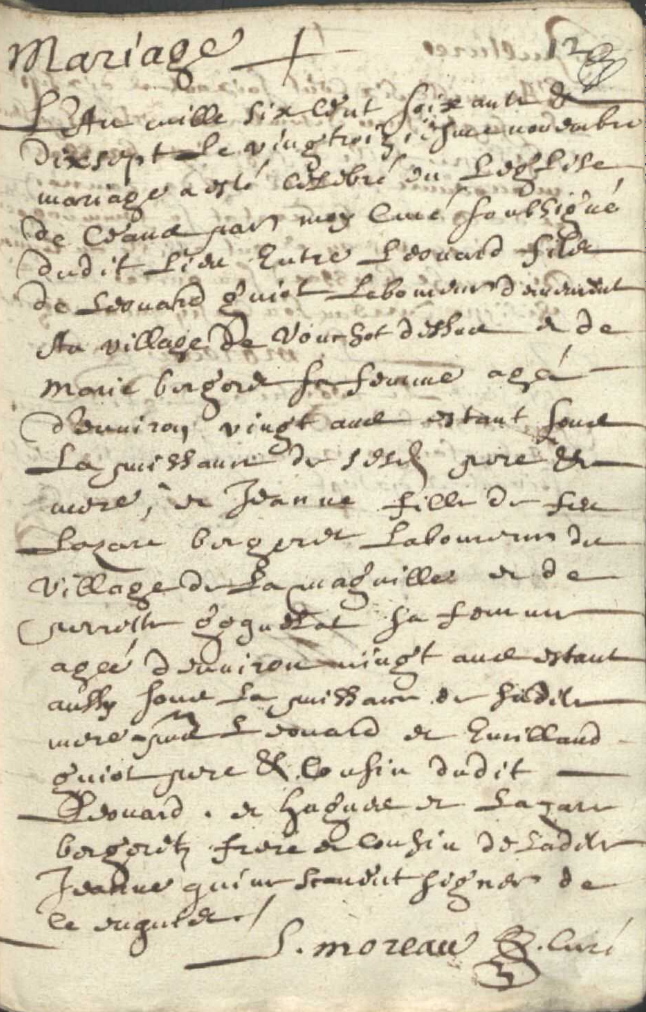 Mariage 12
L'An mille six cent soixante &
dixsept le vingtroiziesme novembre
mariage a esté célébré en Leglise
de ceans par moy Curé soubsigné
dudit Lieu Entre Leonard filz
de Leonard guiot Laboureur demeurant
Au village De Vouchot dessus et de
Marie bergeret sa femme agé
d'environ vingt ans estant sous
La puissance de sesd pere &
mere, et Jeanne fille de feu
Lazare bergeret Laboureur du
village de La et de
perrette sa femme
agée d'environ vingt ans estant
aussy sous La puissance de sadite
mere Leonard et Emilland
guiot pere & Cousin dudit
Leonard. et hugues et Lazare
bergeretz frere et Cousin de Ladite
Jeanne qui ne scavent signer de
ce enquis
L. moreau Curé